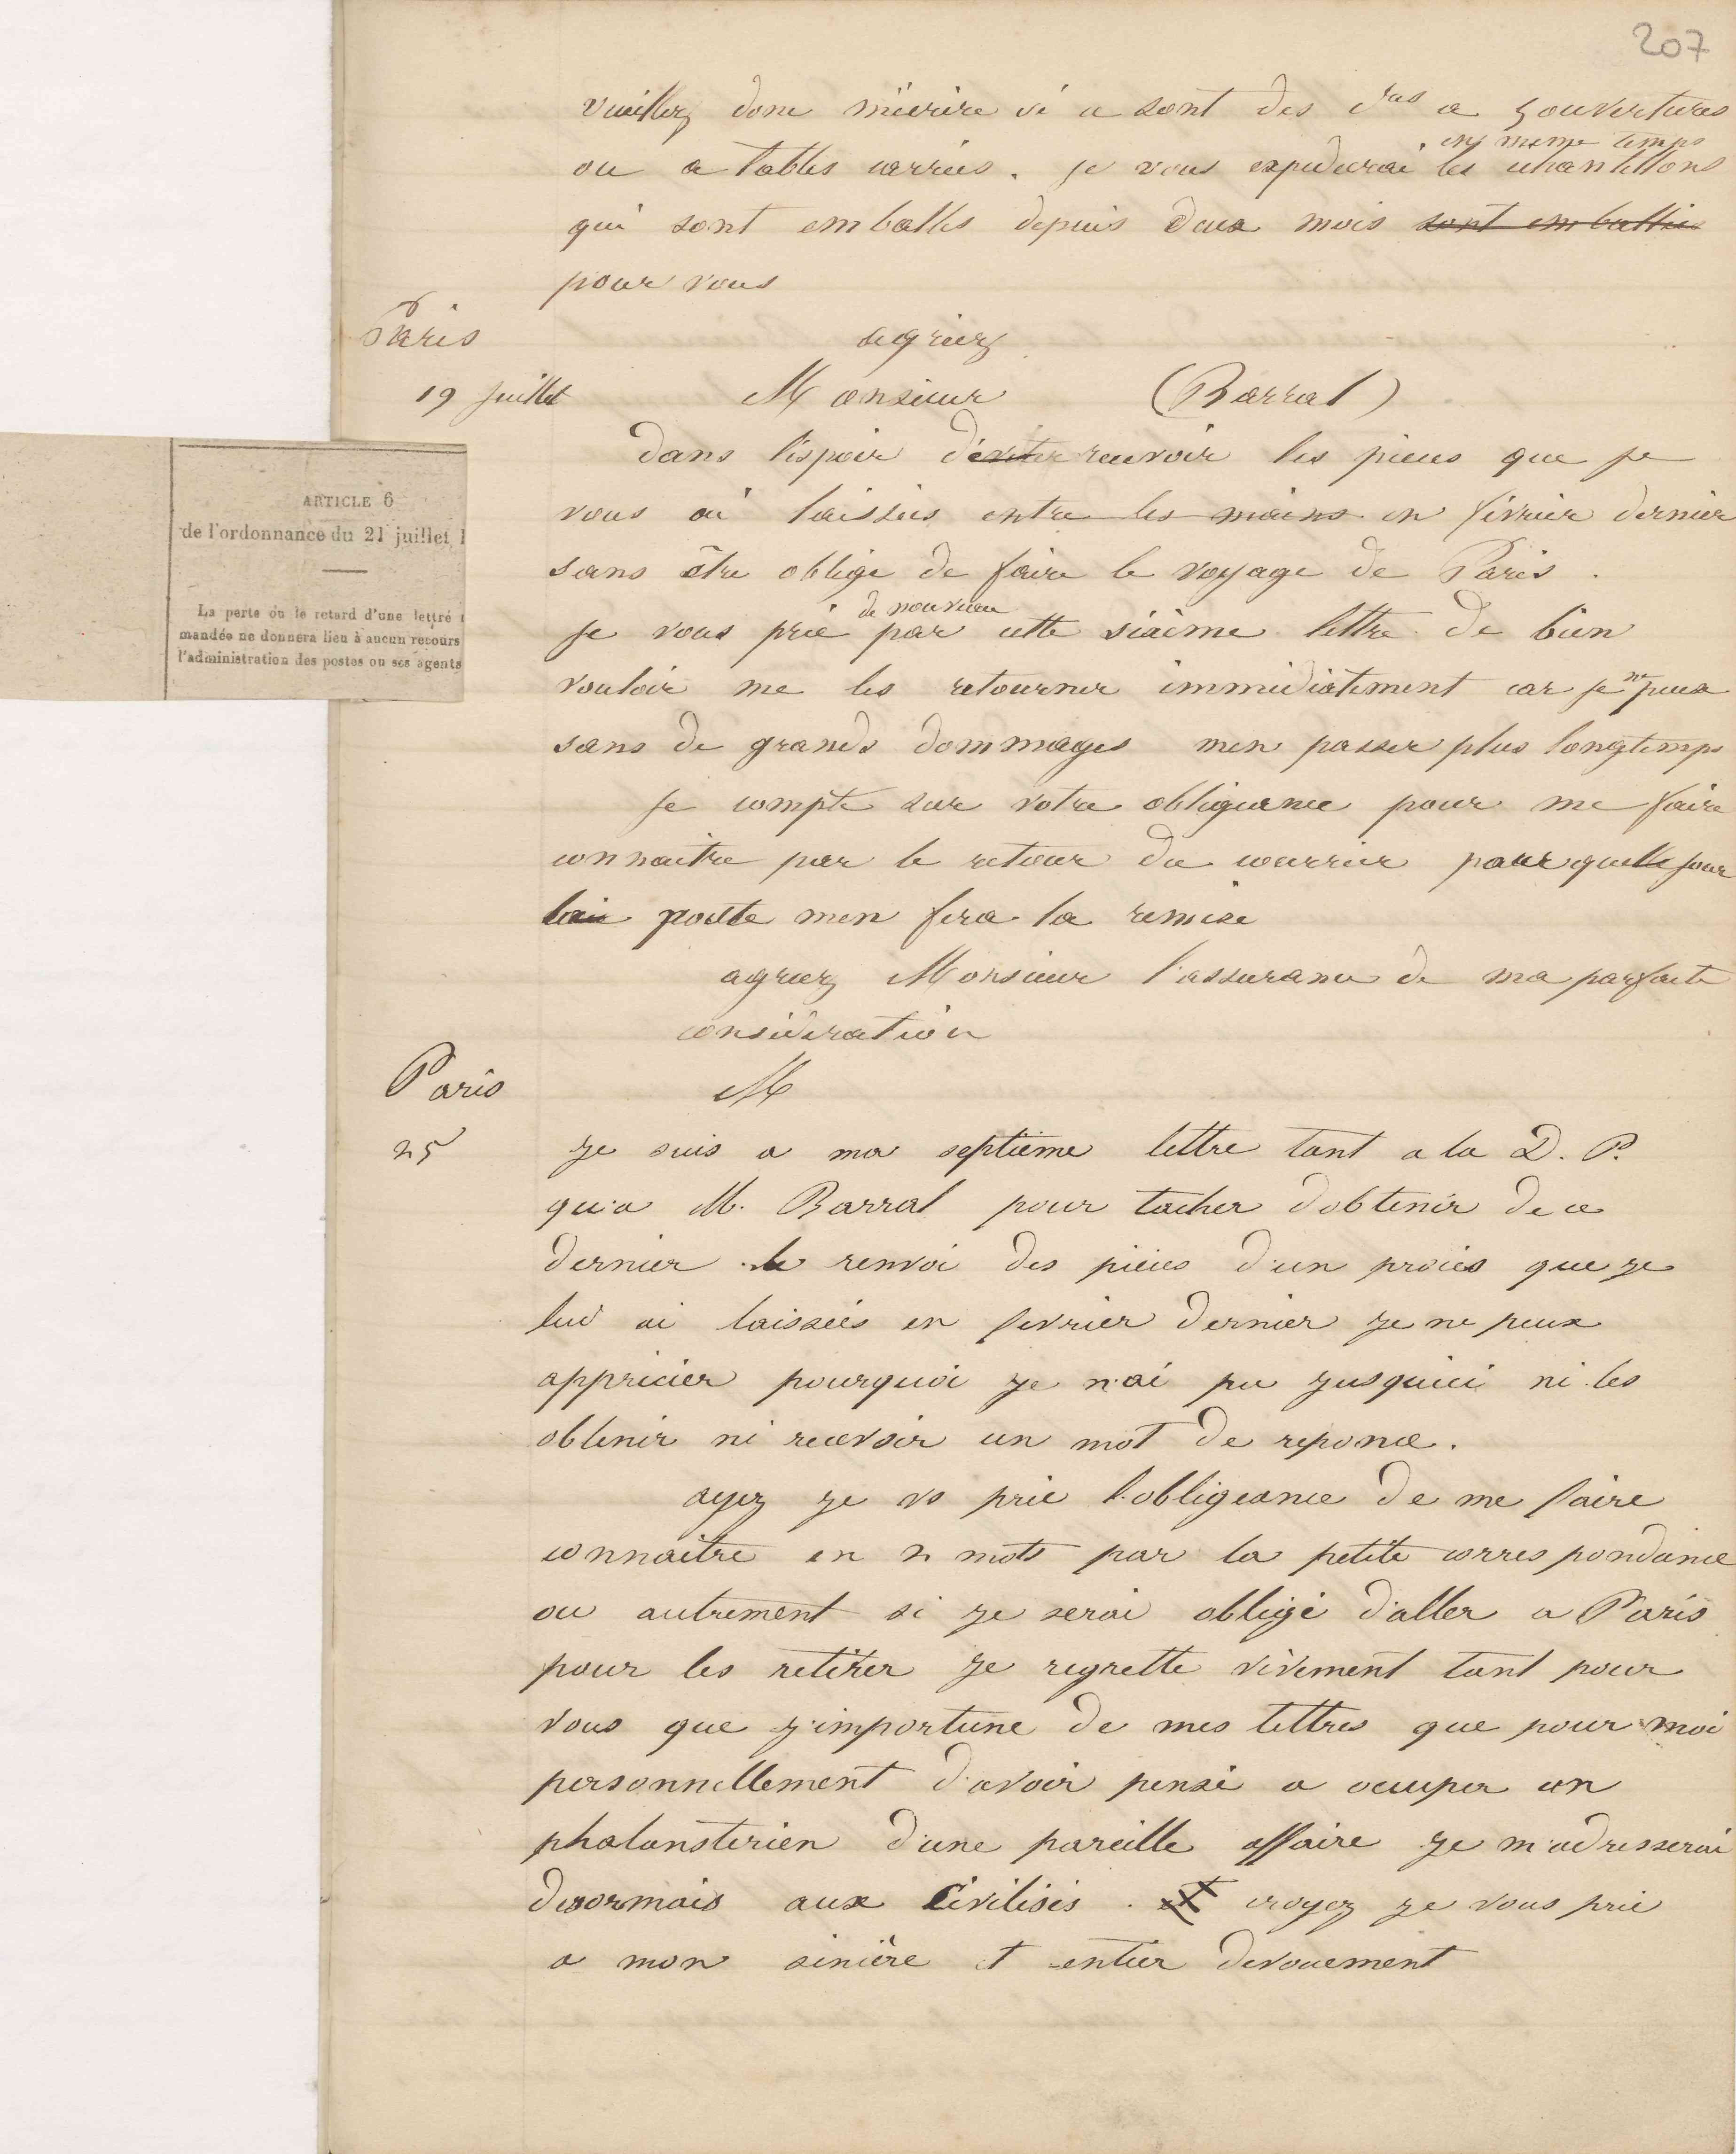 207
veuillez donc m'ecrire si ce sont des c^res a 5 ouvertures
en meme temps
ou a tables carrées. je vous expedierai les echantillons
qui sont emballés depuis deux mois sont emballés
pour vous
Paris
agréez
19 juillet Monsieur (Barral)
dans l'espoir d'eviter recevoir les pieces que je
vous ai laissées entre les mains en février dernier
sans être obligé de faire le voyage de Paris.
de nouveau
je vous prie par cette sixième lettre de bien
vouloir me les retourner immédiatement car je ne peux
sans de grands dommages men passer plus longtemps
je compte sur votre obligeance pour me faire
connaitre par le retour du courrier quel jour
la poste men fera la remise
agréez Monsieur l'assurance de ma parfaite
considération
ARTICLE 6
de l'ordonnance du 21 juillet 1
La perte ou le retard d'une lettre
mandée ne donnera lieu à aucun recours
l'administration des postes ou ses agents
Paris M
25 je suis a ma septième lettre tant a la D. P.
qu'a M. Barral pour tacher d'obtenir de ce
dernier le renvoi des pièces d'un procès que je
lui ai laissées en fevrier dernier je ne peux
apprécier pourquoi je n'ai pu jusquici ni les
obtenir ni recevoir un mot de reponce.
ayez je vs prie l'obligeance de me faire
connaitre en 2 mots par la petite correspondance
ou autrement si je serai obligé d'aller a Paris
pour les retirer je regrette vivement tant pour
vous que j'importune de mes lettres que pour moi
personnellement d'avoir pensé a occuper un
phalansterien d'une pareille affaire je m'adresserai
desormais aux Civilisés. et croyez je vous prie
a mon sincère et entier devouement